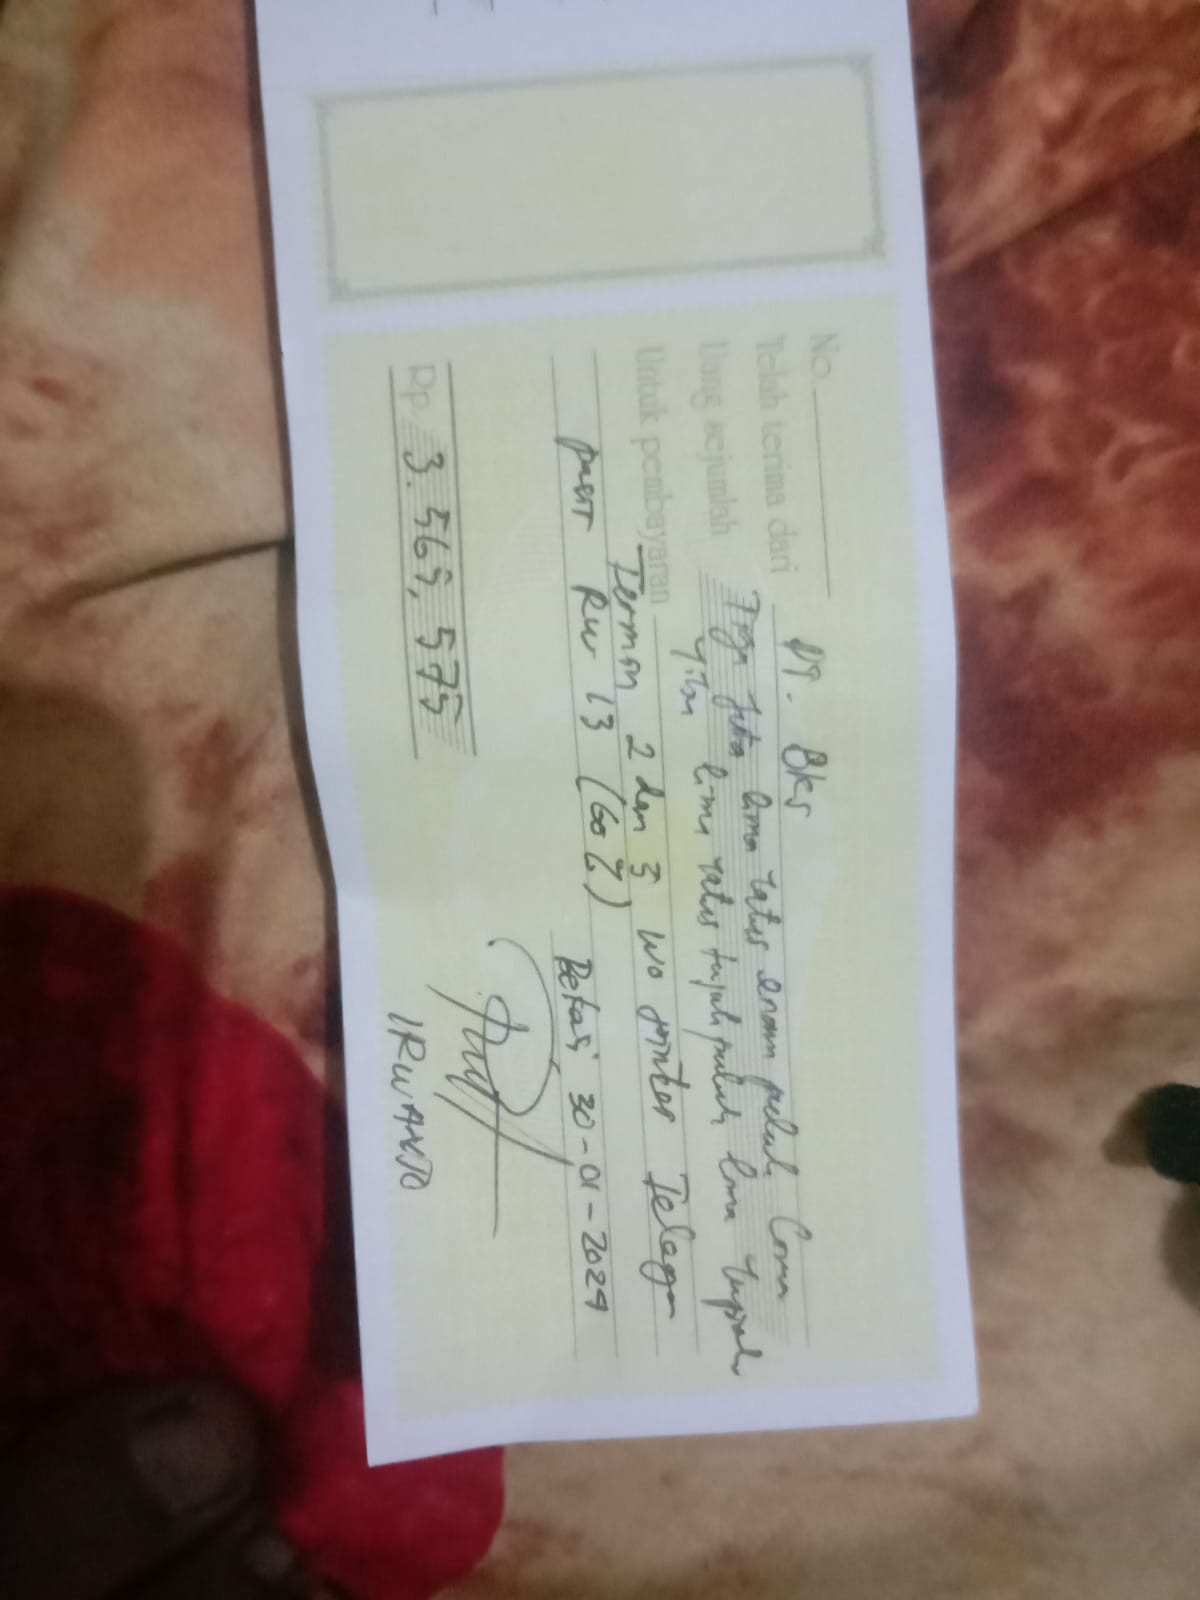 No.
Telah terima dari PT. BKS
Uang sejumlah Tiga juta lima ratus enam puluh lima
ribu lima ratus tujuh puluh lima rupiah
Untuk pembayaran Termin 2 dan 3 WO pointer Telaga
pasir RW 13 (60%)
Bekasi 30-01-2024
Rp. 3.565,575
IRWANTO